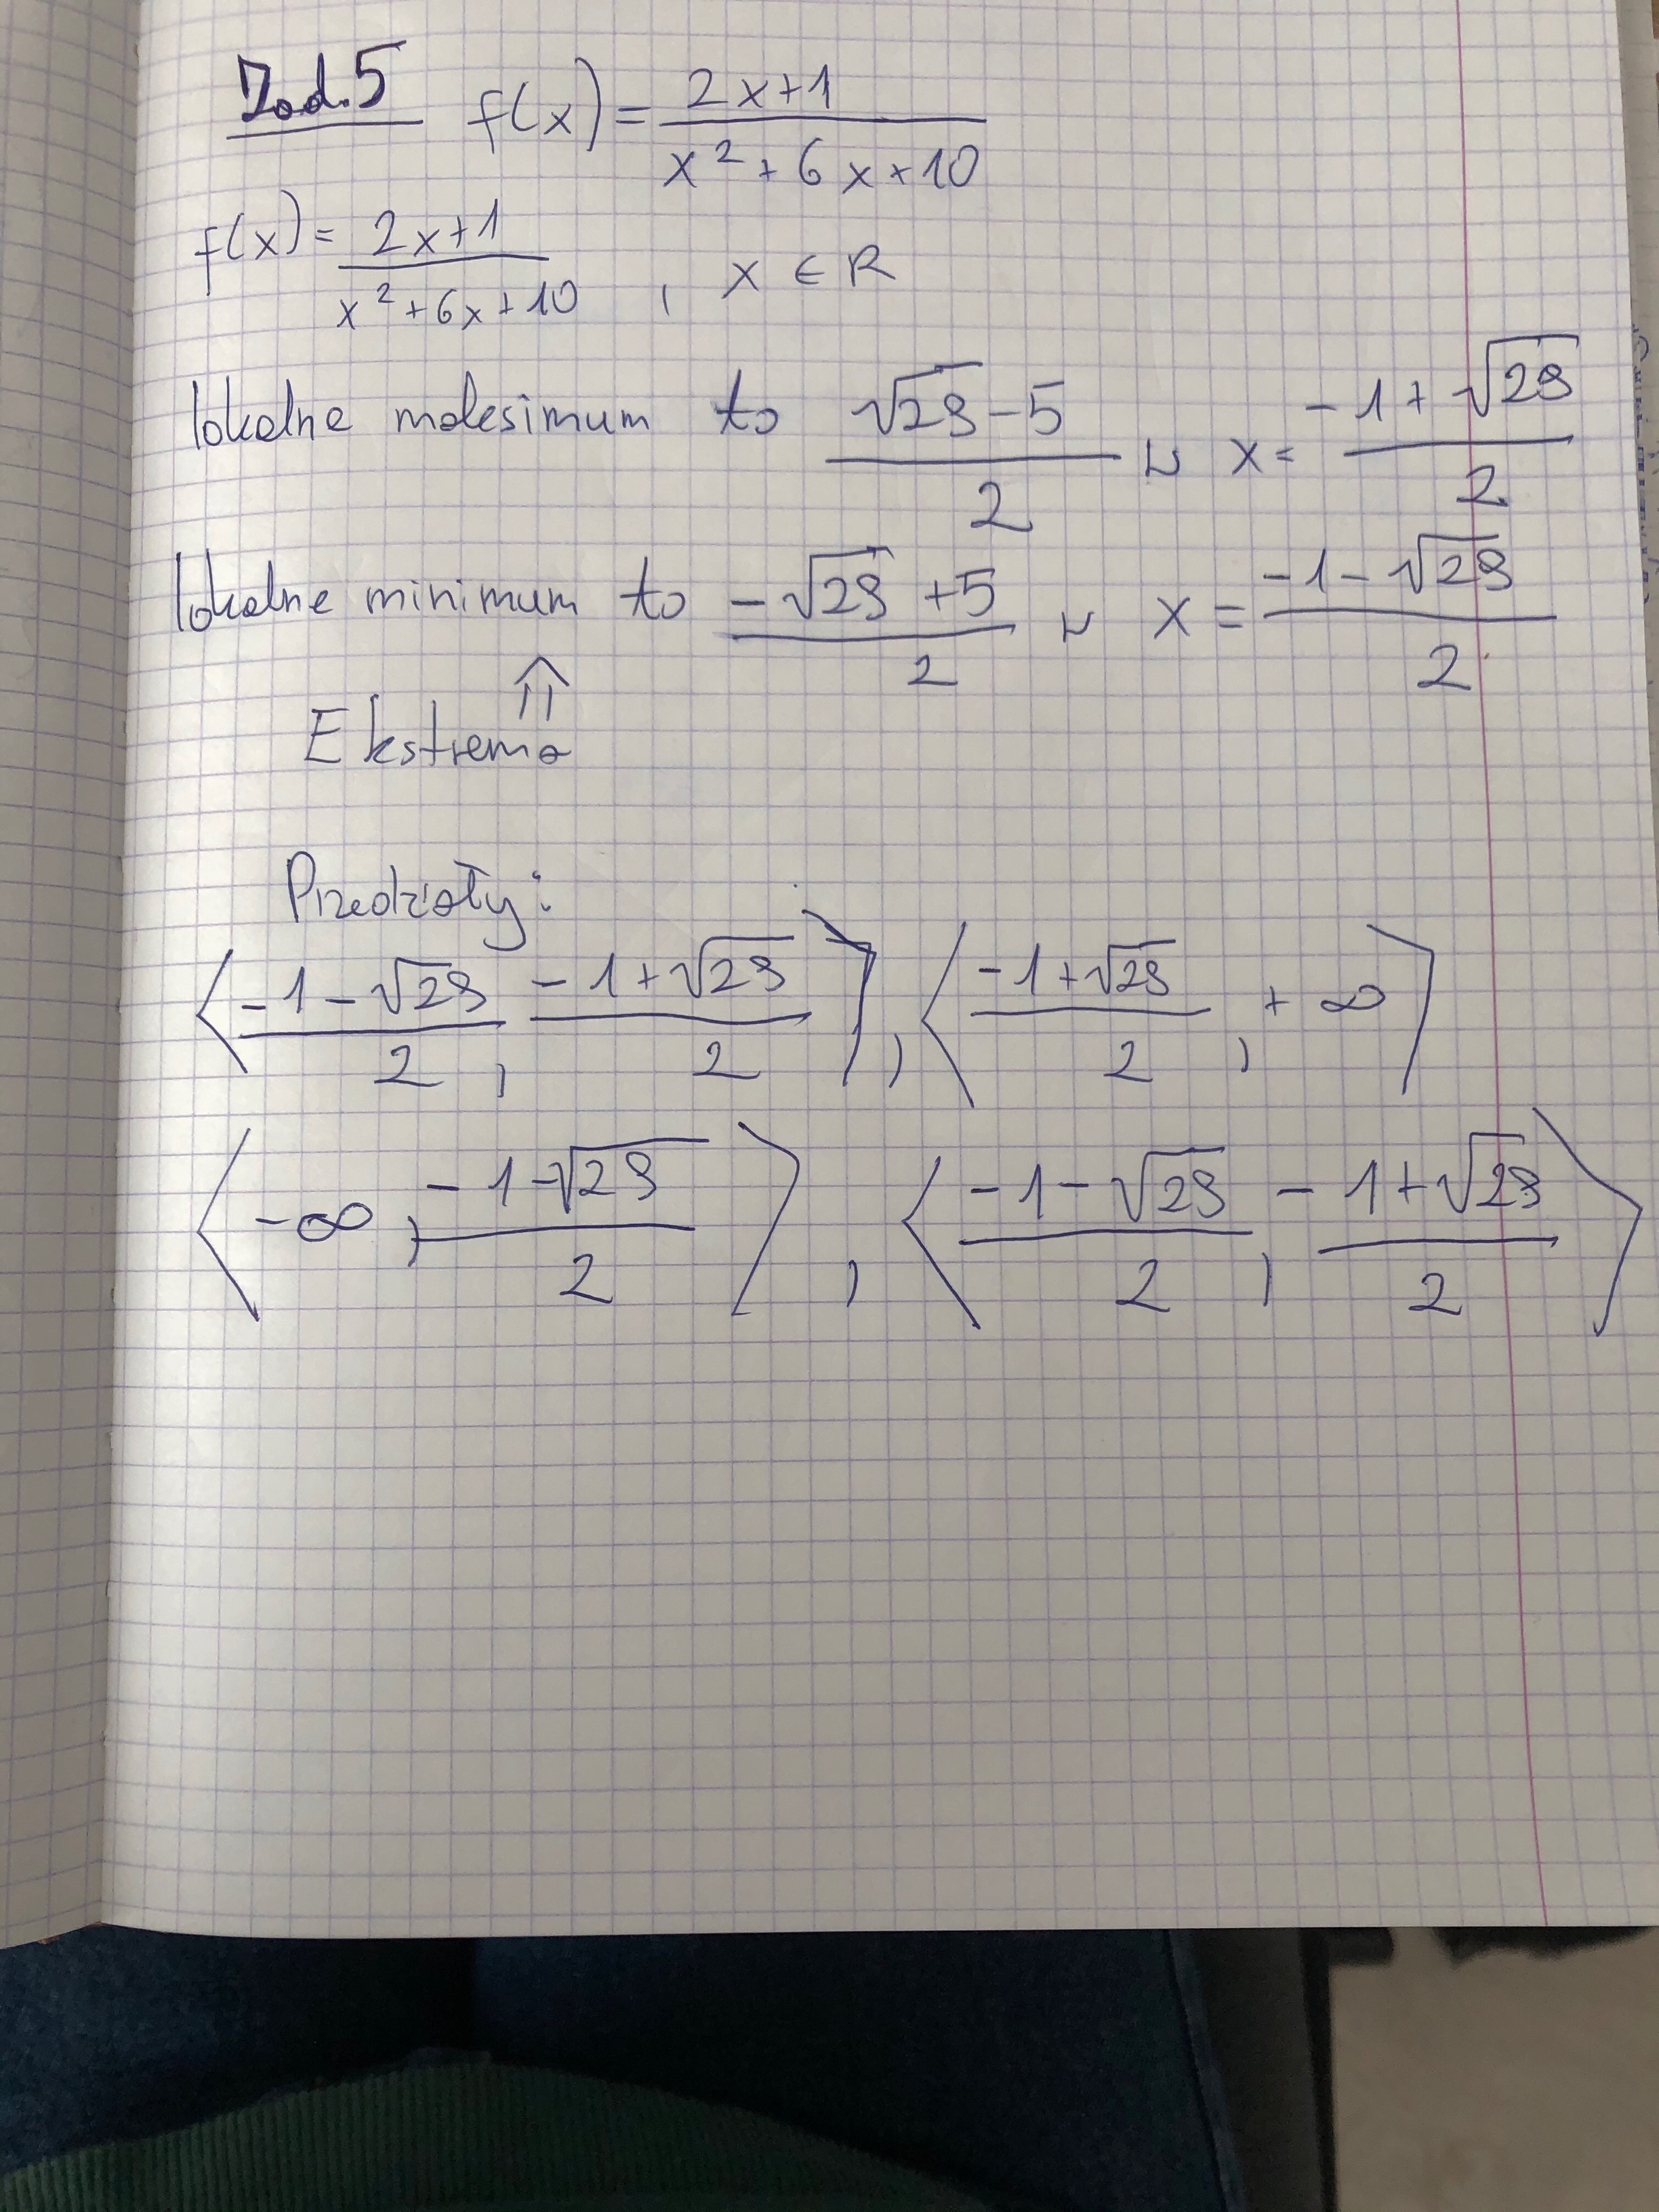 Zad.5 f(x) = (2x+1)/(x²+6x+10)
f(x) = (2x+1)/(x²+6x+10) , x ∈ R
lokalne maksimum to (√29-5)/2 w x = (-1+√29)/2
lokalne minimum to (-√29+5)/2 w x = (-1-√29)/2
⇑
Ekstrema
Przedziały:
⟨(-1-√29)/2, (-1+√29)/2⟩, ⟨(-1+√29)/2, +∞⟩
⟨-∞, (-1-√29)/2⟩, ⟨(-1-√29)/2, (-1+√29)/2⟩